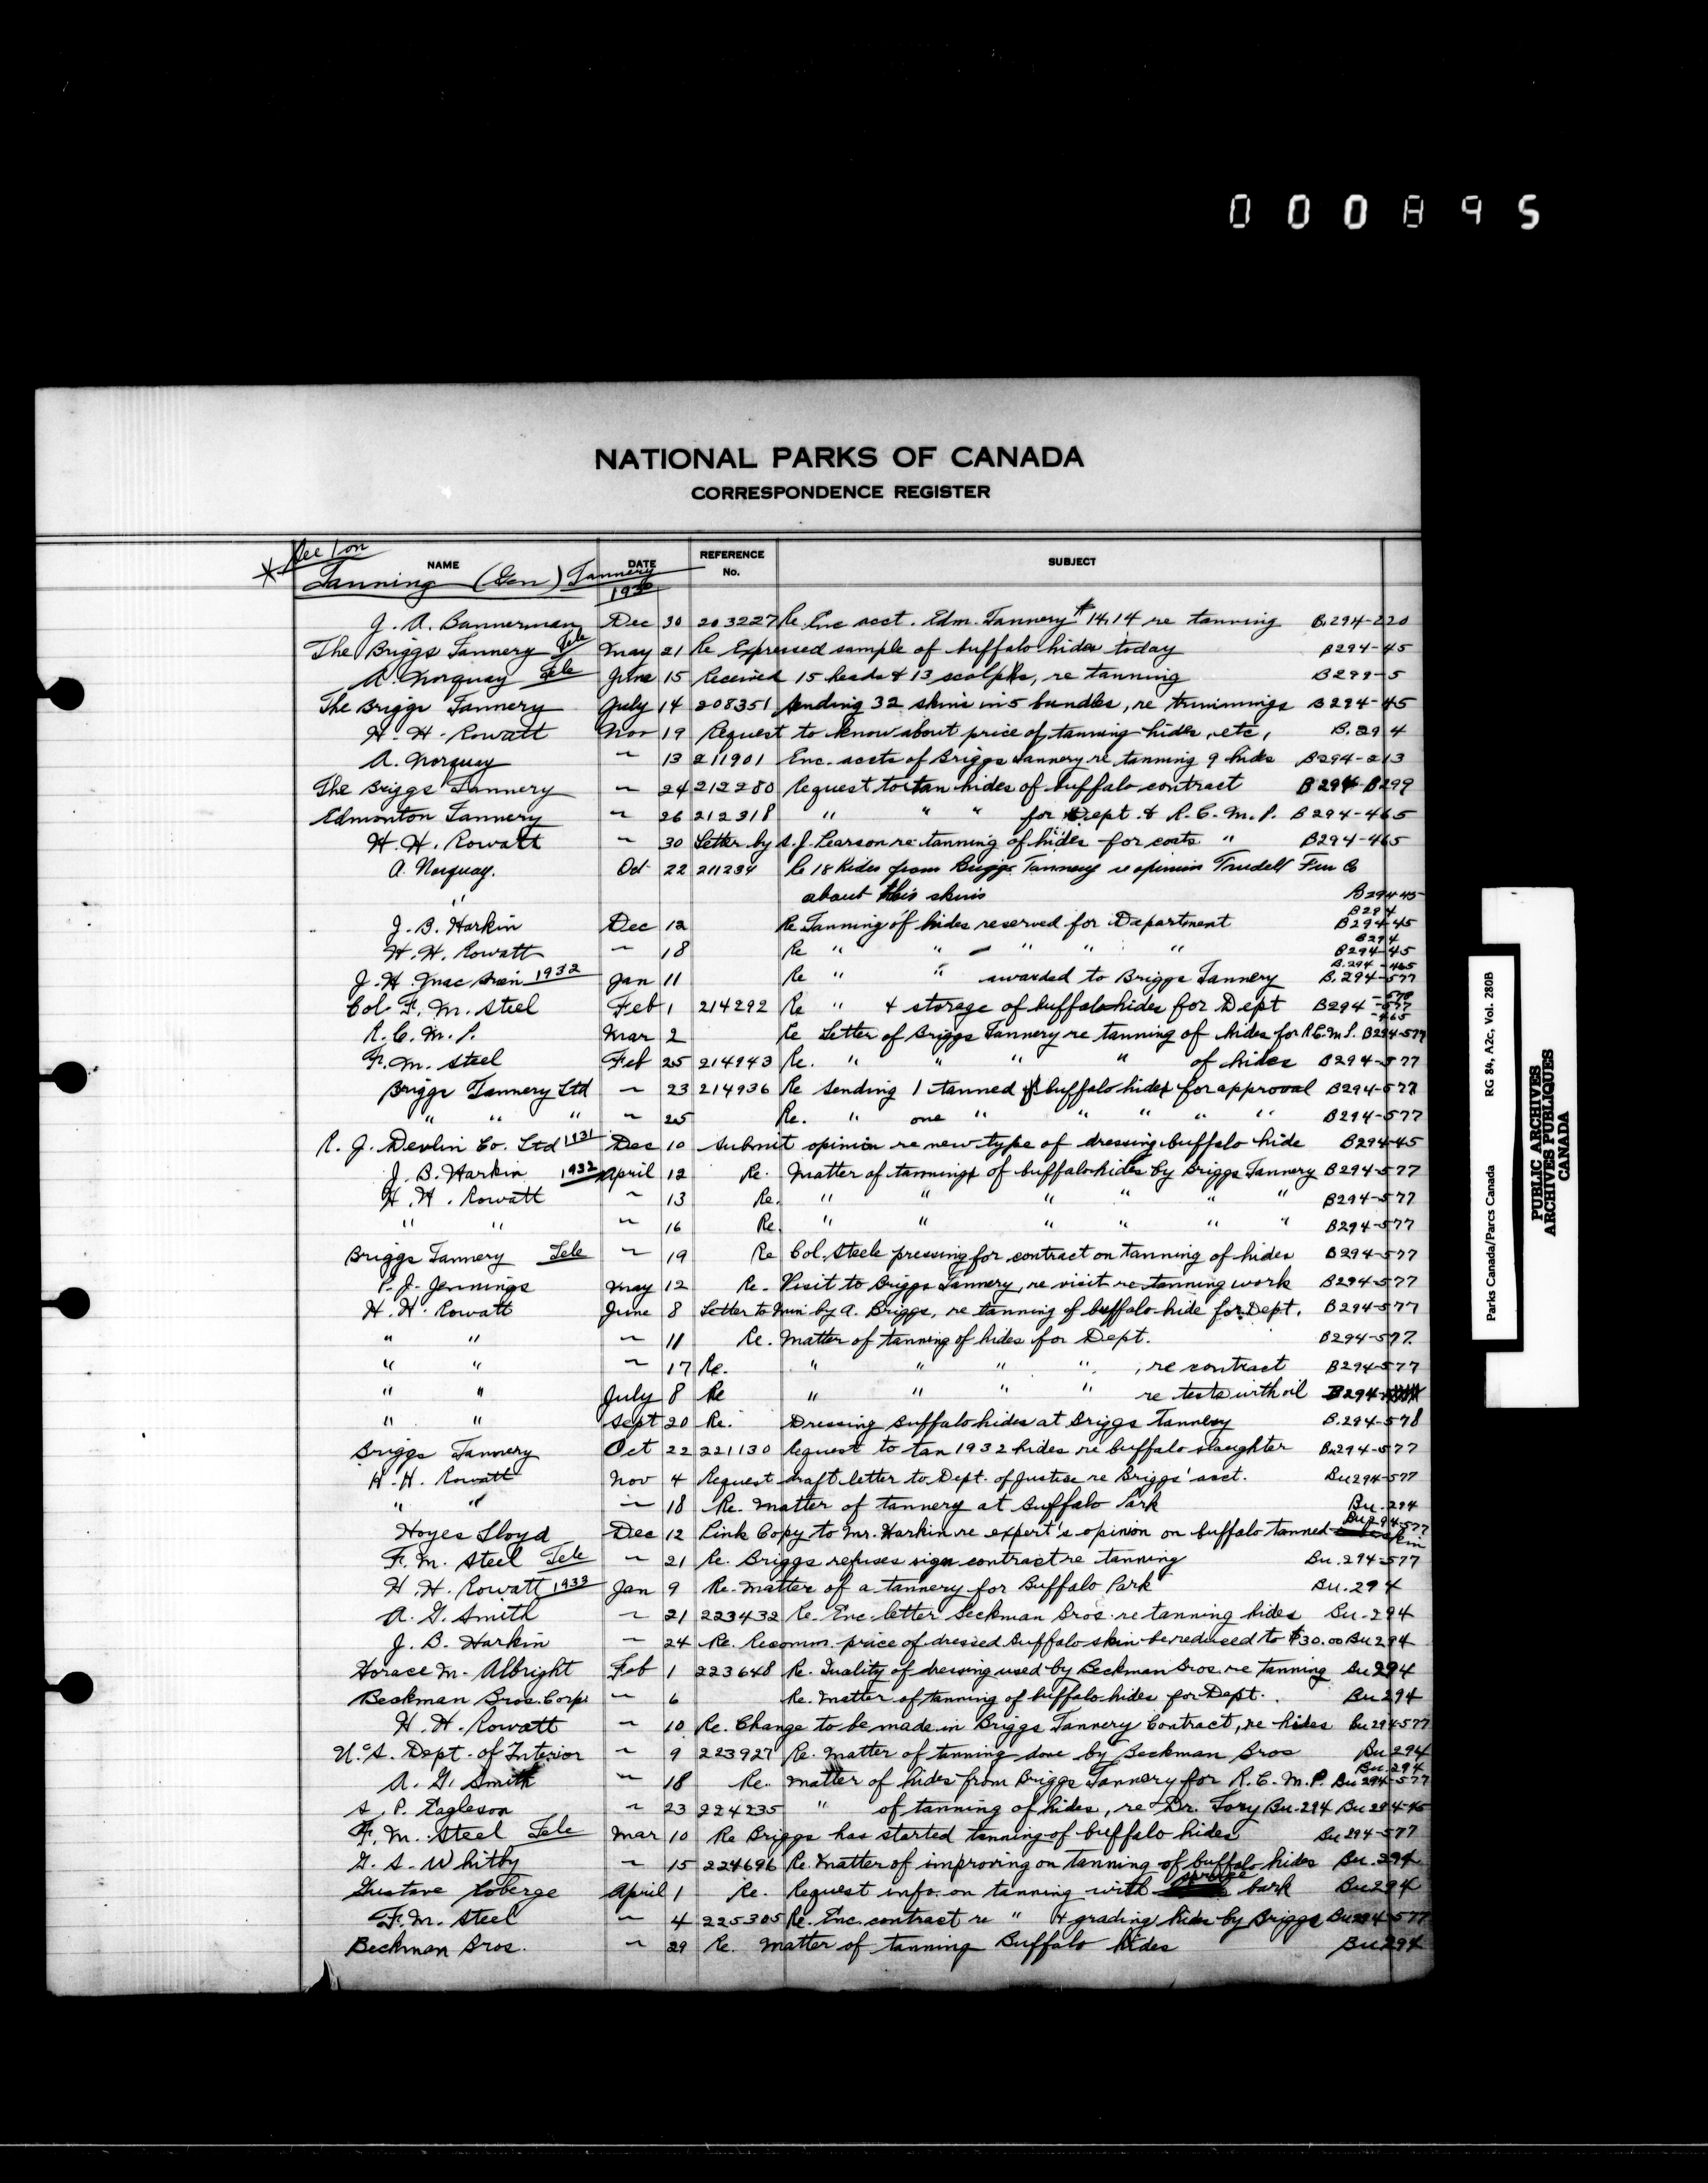 000895
NATIONAL PARKS OF CANADA
CORRESPONDENCE REGISTER
NAME DATE REFERENCE No. SUBJECT
Tanning (Gen) Tannery
1930
J. A. Bannerman Dec 30 203227 Re Enc acct. Edm. Tannery $14.14 re tanning B.294-220
The Briggs Tannery Tele May 21 Re Expressed sample of buffalo hides today B294-45
A. Norquay Tele June 15 Received 15 heads & 13 scalps, re tanning B299-5
The Briggs Tannery July 14 208351 Sending 32 skins in 5 bundles, re trimmings B294-45
H. H. Rowatt Nov 19 Request to know about price of tanning hides, etc, B.294
A. Norquay ~ 13 211901 Enc. accts of Briggs Tannery re tanning 9 hides B294-213
The Briggs Tannery ~ 24 212280 Request to tan hides of buffalo contract B294-B299
Edmonton Tannery ~ 26 212318 " " " for Dept. & R.C.M.P. B294-465
H. H. Rowatt ~ 30 Letter by S. J. Pearson re tanning of hides for coats " B294-465
A. Norquay. Oct 22 211234 Re 18 hides from Briggs Tannery re opinion Trudell Fur Co
" about this skins B294-45
B294
J. B. Harkin Dec 12 Re Tanning of hides reserved for Department B294-45
B294
H. H. Rowatt ~ 18 Re " " " " " B294-45
B.294-465
J. H. MacBrien 1932 Jan 11 Re " " awarded to Briggs Tannery B.294-577
Col. F. M. Steel Feb 1 214292 Re " & storage of buffalo hides for Dept B294-577
-465
R. C. M. P. Mar 2 Re Letter of Briggs Tannery re tanning of hides for R.C.M.P. B294-577
F. M. Steel Feb 25 214943 Re. " " " " of hides B294-577
Briggs Tannery Ltd ~ 23 214936 Re Sending 1 tanned buffalo hide for approval B294-577
" " " ~ 25 Re. " one " " " " " B294-577
R. J. Devlin Co. Ltd 1931 Dec 10 Submit opinion re new type of dressing buffalo hide B294-45
J. B. Harkin 1932 April 12 Re. Matter of tanning of buffalo hides by Briggs Tannery B294-577
H. H. Rowatt ~ 13 Re. " " " " " " B294-577
" " ~ 16 Re. " " " " " " B294-577
Briggs Tannery Tele ~ 19 Re Col. Steele pressing for contract on tanning of hides B294-577
P. J. Jennings May 12 Re. Visit to Briggs Tannery, re visit re tanning work B294-577
H. H. Rowatt June 8 Letter to Min. by A. Briggs, re tanning of buffalo hide for Dept. B294-577
" " ~ 11 Re. Matter of tanning of hides for Dept. B294-577.
" " ~ 17 Re. " " " " , re contract B294-577
" " July 8 Re " " " " re tests with oil B294-
" " Sept 20 Re. Dressing Buffalo hides at Briggs Tannery B.294-578
Briggs Tannery Oct 22 221130 Request to tan 1932 hides re buffalo slaughter Bu294-577
H. H. Rowatt Nov 4 Request draft letter to Dept. of Justice re Briggs' acct. Bu294-577
" " ~ 18 Re. Matter of tannery at Buffalo Park Bu.294
Bu294-577
Hoyes Lloyd Dec 12 Pink Copy to Mr. Harkin re expert's opinion on buffalo tanned skin
F. M. Steel Tele ~ 21 Re. Briggs refuses sign contract re tanning Bu.294-577
H. H. Rowatt 1933 Jan 9 Re. Matter of a tannery for Buffalo Park Bu.294
A. G. Smith ~ 21 223432 Re. Enc. letter Beckman Bros. re tanning hides Bu.294
J. B. Harkin ~ 24 Re. Recomm. price of dressed Buffalo skin be reduced to $30.00 Bu294
Horace M. Albright Feb 1 223648 Re. Quality of dressing used by Beckman Bros. re tanning Bu294
Beckman Bros. Corp. ~ 6 Re. Matter of tanning of buffalo hides for Dept. Bu294
H. H. Rowatt ~ 10 Re. Change to be made in Briggs Tannery Contract, re hides Bu294-577
U.S. Dept. of Interior ~ 9 223927 Re. Matter of tanning done by Beckman Bros Bu294
Bu.294
A. G. Smith ~ 18 Re. Matter of hides from Briggs Tannery for R.C.M.P. Bu294-577
S. P. Eagleson ~ 23 224235 " of tanning of hides, re Dr. Tory Bu.294 Bu294-45
F. M. Steel Tele Mar 10 Re Briggs has started tanning of buffalo hides Bu294-577
G. S. Whitby ~ 15 224696 Re. Matter of improving on tanning of buffalo hides Bu.294
Gustave Roberge April 1 Re. Request info. on tanning with spruce bark Bu294
F. M. Steel ~ 4 225305 Re. Enc. contract re " & grading hides by Briggs Bu294-577
Beckman Bros. ~ 29 Re. Matter of tanning Buffalo hides Bu294
Parks Canada/Parcs Canada RG 84, A2c, Vol. 280B
PUBLIC ARCHIVES
ARCHIVES PUBLIQUES
CANADA